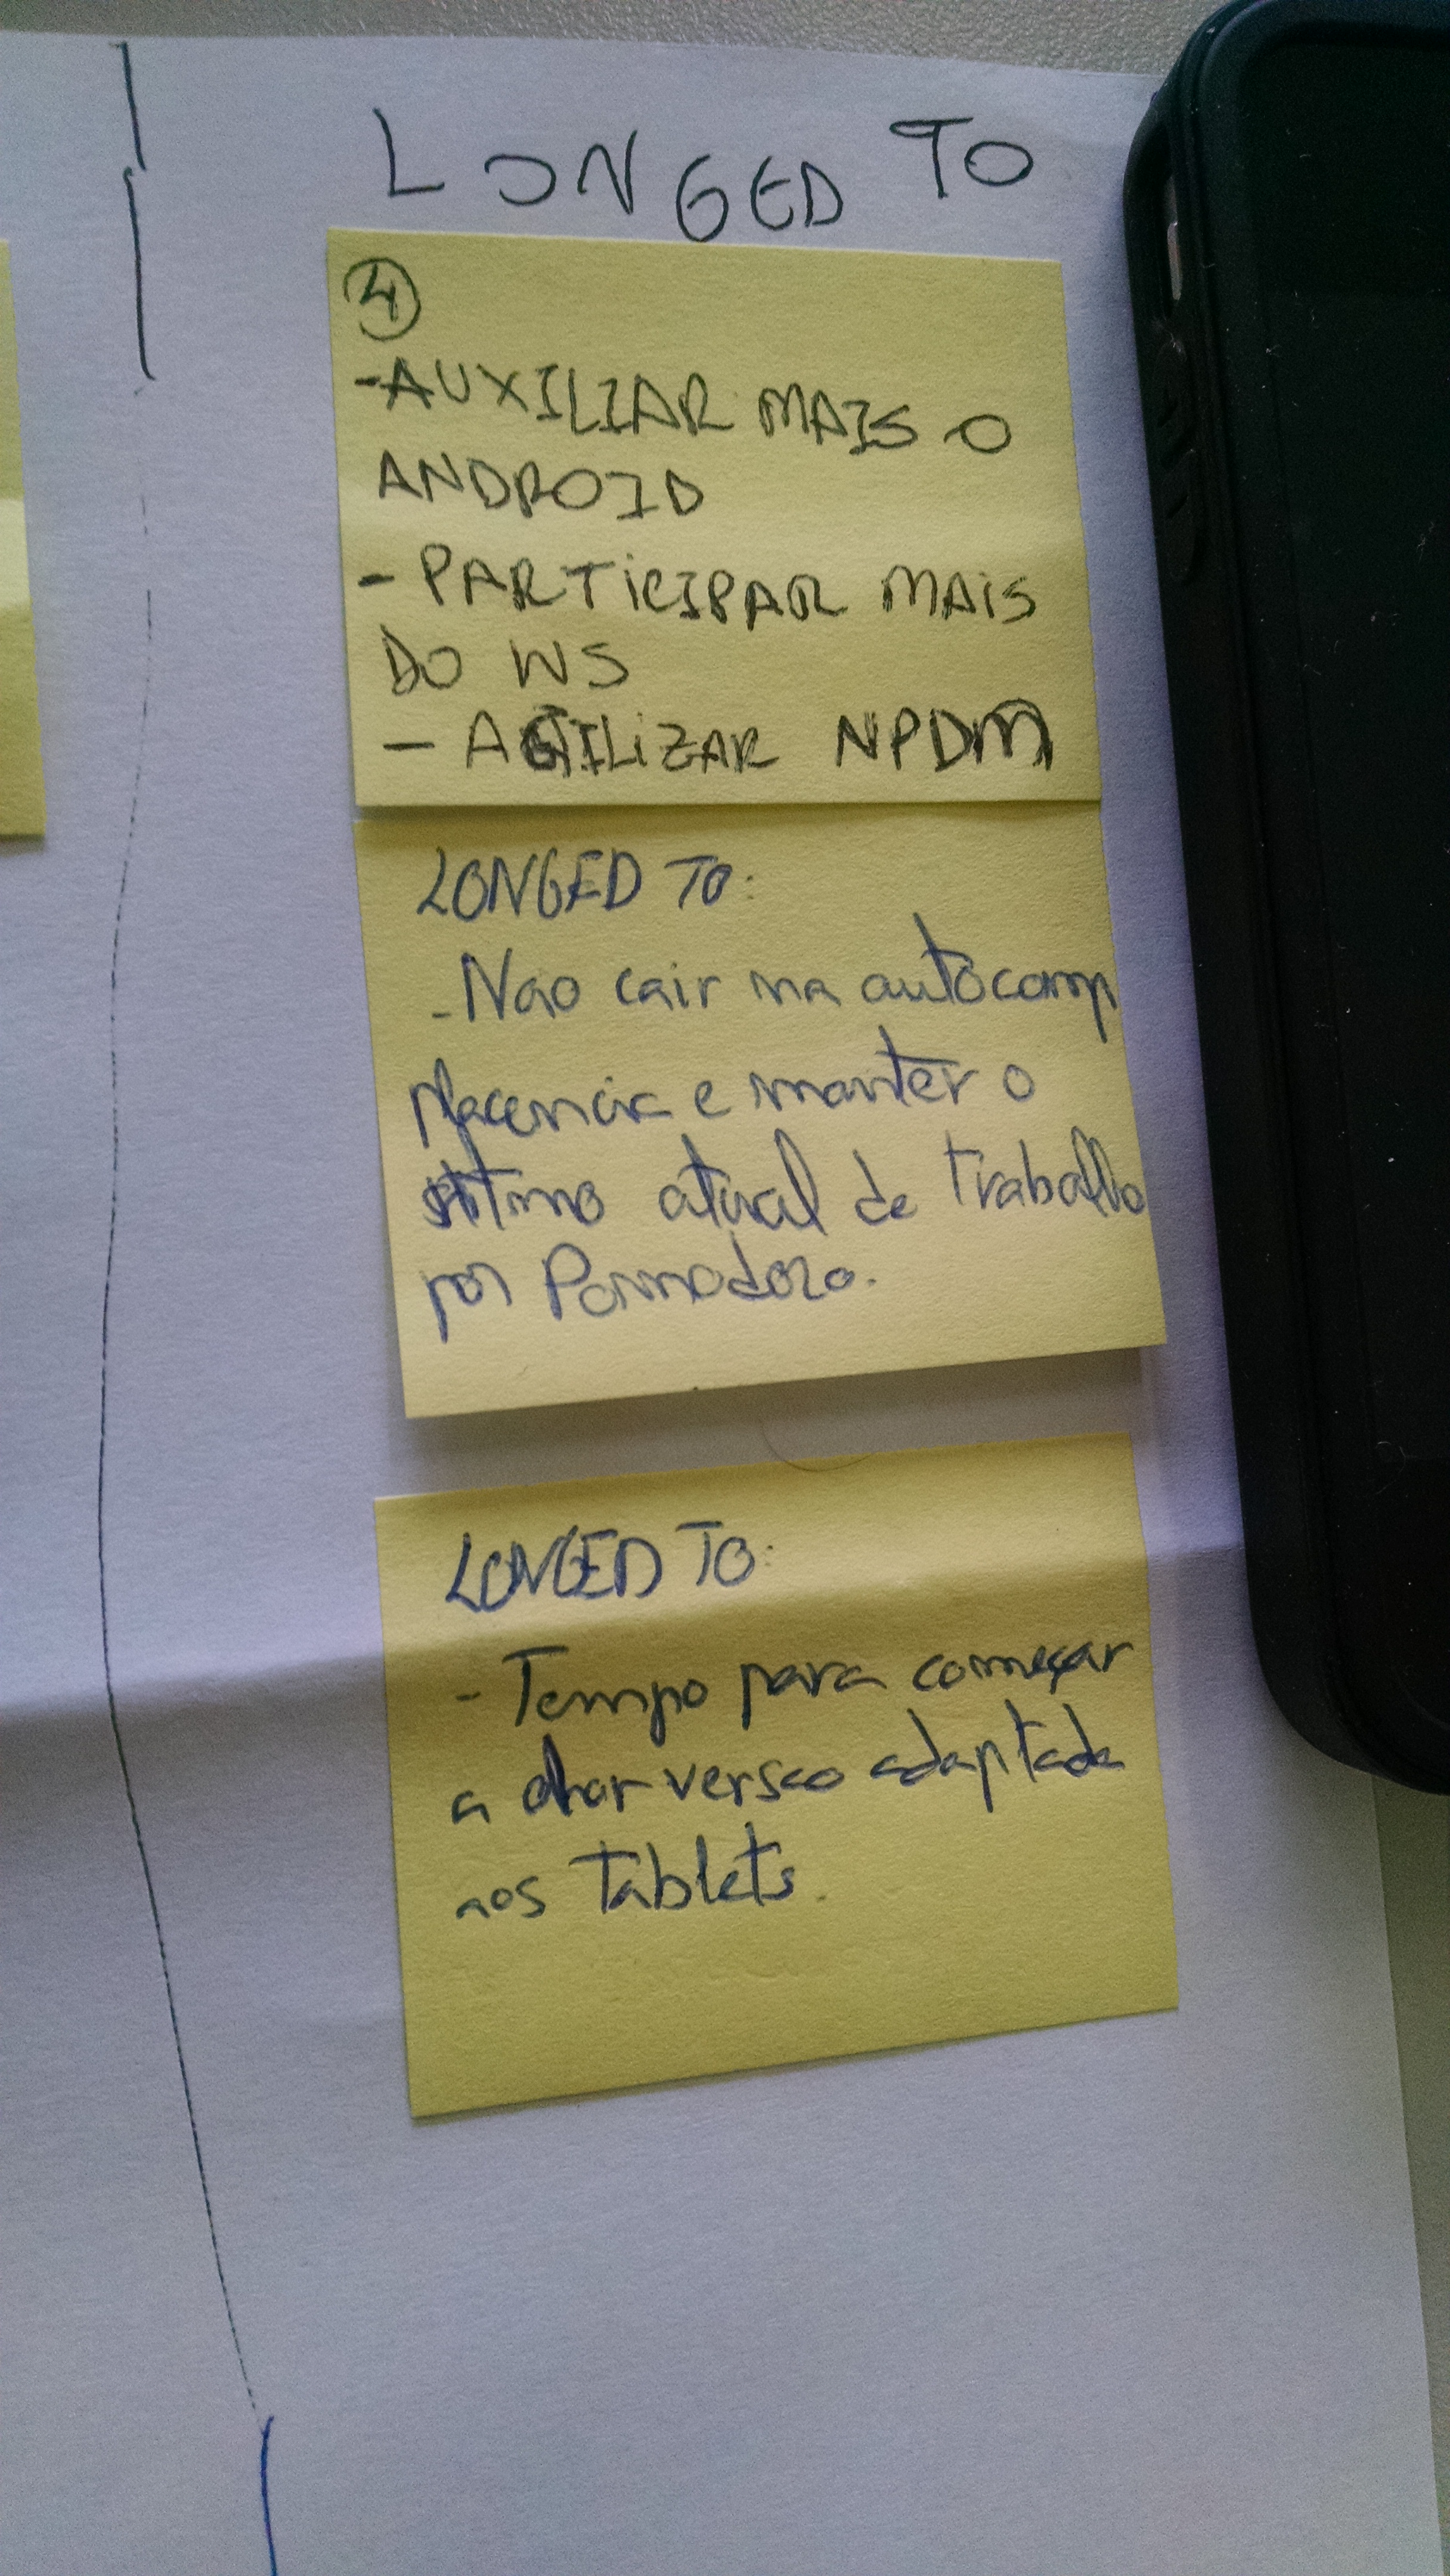 LONGED TO
4
-AUXILIAR MAIS O
ANDROID
- PARTICIPAR MAIS
DO WS
- AGILIZAR NPDM
LONGED TO:
- Nao cair na autocomp
placencia e manter o
ritmo atual de trabalho
por Pomodoro.
LONGED TO:
- Tempo para começar
a olhar versao adaptada
aos tablets.